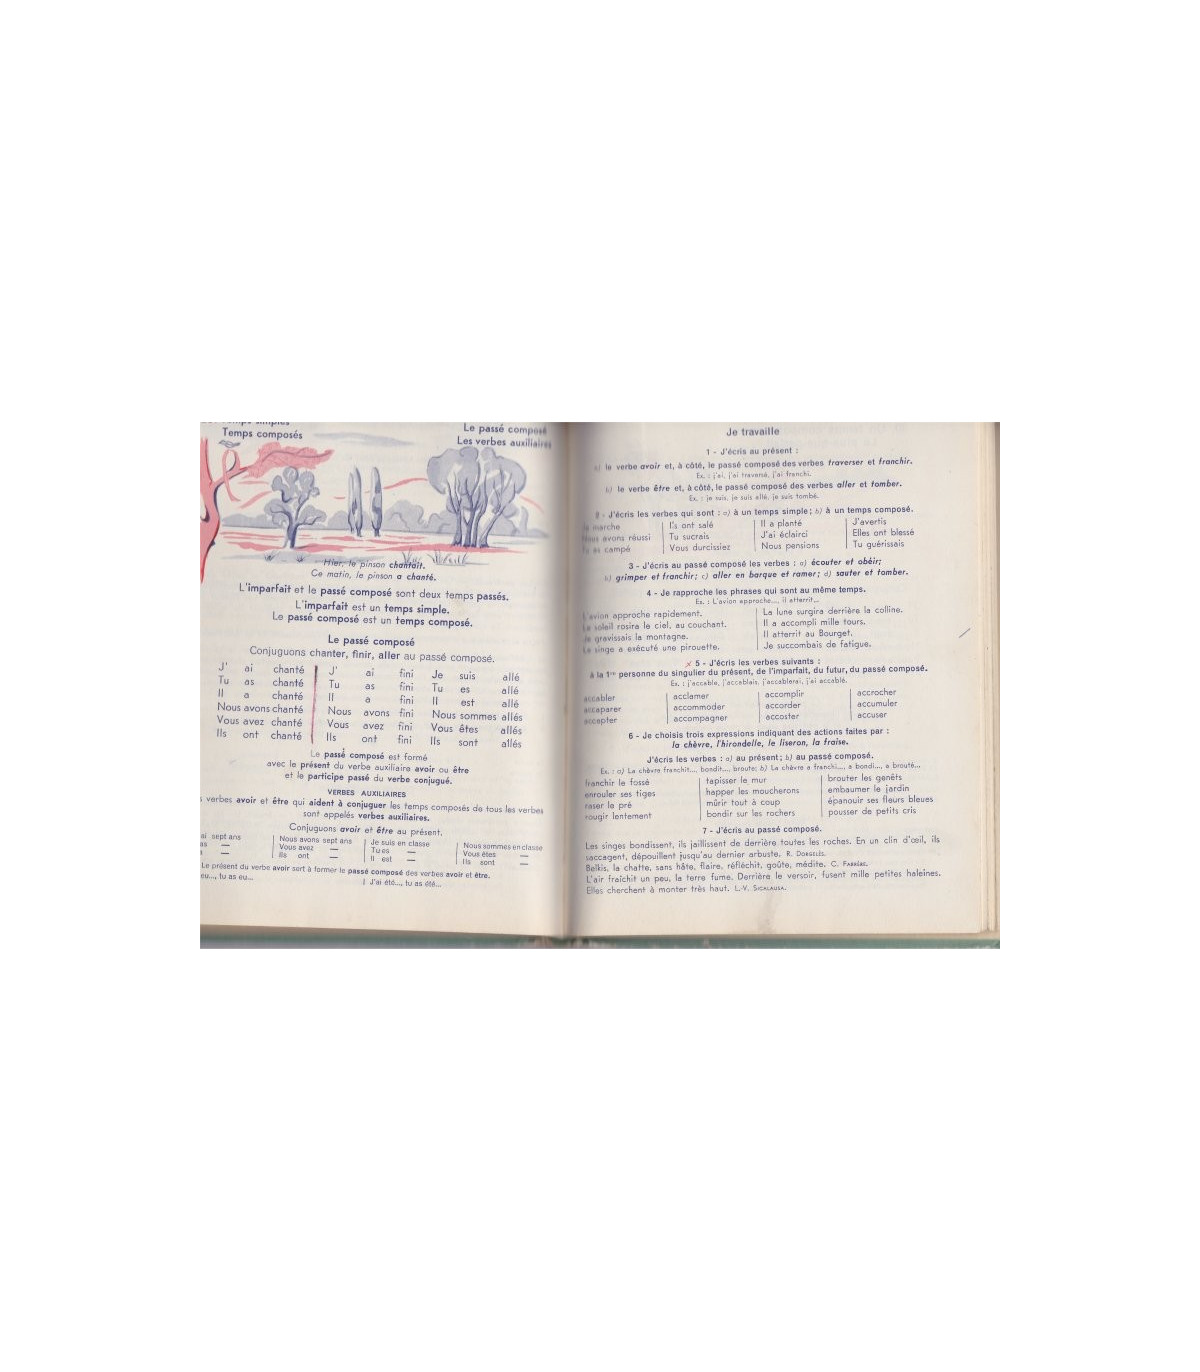 Temps composés
Le passé composé
Les verbes auxiliaires
Hier, le pinson chantait.
Ce matin, le pinson a chanté.
L'imparfait et le passé composé sont deux temps passés.
L'imparfait est un temps simple.
Le passé composé est un temps composé.
Le passé composé
Conjuguons chanter, finir, aller au passé composé.
J' ai chanté J' ai fini Je suis allé
Tu as chanté Tu as fini Tu es allé
Il a chanté Il a fini Il est allé
Nous avons chanté Nous avons fini Nous sommes allés
Vous avez chanté Vous avez fini Vous êtes allés
Ils ont chanté Ils ont fini Ils sont allés
Le passé composé est formé
avec le présent du verbe auxiliaire avoir ou être
et le participe passé du verbe conjugué.
VERBES AUXILIAIRES
verbes avoir et être qui aident à conjuguer les temps composés de tous les verbes
sont appelés verbes auxiliaires.
Conjuguons avoir et être au présent.
ai sept ans Nous avons sept ans Je suis en classe Nous sommes en classe
as — Vous avez — Tu es — Vous êtes —
a — Ils ont — Il est — Ils sont —
Le présent du verbe avoir sert à former le passé composé des verbes avoir et être.
eu..., tu as eu... J'ai été..., tu as été...
Je travaille
1 - J'écris au présent :
a) le verbe avoir et, à côté, le passé composé des verbes traverser et franchir.
Ex. : j'ai, j'ai traversé, j'ai franchi.
b) le verbe être et, à côté, le passé composé des verbes aller et tomber.
Ex. : je suis, je suis allé, je suis tombé.
2 - J'écris les verbes qui sont : a) à un temps simple; b) à un temps composé.
marche Ils ont salé Il a planté J'avertis
avons réussi Tu sucrais J'ai éclairci Elles ont blessé
as campé Vous durcissiez Nous pensions Tu guérissais
3 - J'écris au passé composé les verbes : a) écouter et obéir;
b) grimper et franchir; c) aller en barque et ramer; d) sauter et tomber.
4 - Je rapproche les phrases qui sont au même temps.
Ex. : L'avion approche..., il atterrit...
L'avion approche rapidement. La lune surgira derrière la colline.
Le soleil rosira le ciel, au couchant. Il a accompli mille tours.
Je gravissais la montagne. Il atterrit au Bourget.
Le singe a exécuté une pirouette. Je succombais de fatigue.
5 - J'écris les verbes suivants :
à la 1re personne du singulier du présent, de l'imparfait, du futur, du passé composé.
Ex. : j'accable, j'accablais, j'accablerai, j'ai accablé.
accabler acclamer accomplir accrocher
accaparer accommoder accorder accumuler
accepter accompagner accoster accuser
6 - Je choisis trois expressions indiquant des actions faites par :
la chèvre, l'hirondelle, le liseron, la fraise.
J'écris les verbes : a) au présent; b) au passé composé.
Ex. : a) La chèvre franchit..., bondit..., broute; b) La chèvre a franchi..., a bondi..., a brouté...
franchir le fossé tapisser le mur brouter les genêts
enrouler ses tiges happer les moucherons embaumer le jardin
raser le pré mûrir tout à coup épanouir ses fleurs bleues
rougir lentement bondir sur les rochers pousser de petits cris
7 - J'écris au passé composé.
Les singes bondissent, ils jaillissent de derrière toutes les roches. En un clin d'œil, ils
saccagent, dépouillent jusqu'au dernier arbuste. R. DORGELÈS.
Belkis, la chatte, sans hâte, flaire, réfléchit, goûte, médite. C. FARRÈRE.
L'air fraîchit un peu, la terre fume. Derrière le versoir, fusent mille petites haleines.
Elles cherchent à monter très haut. L.-V. SICALAUSA.